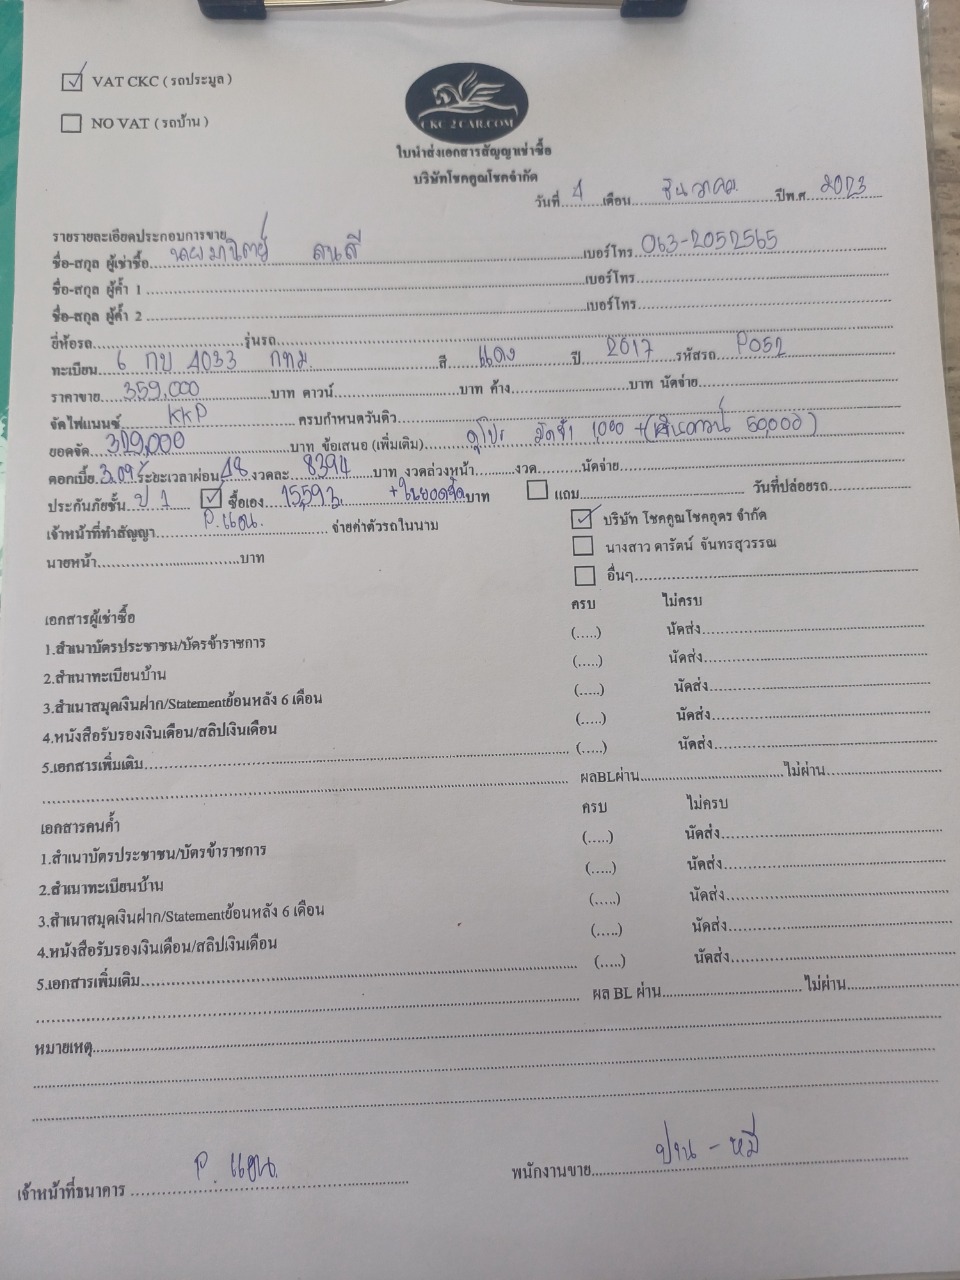 VAT CKC ( รถประมูล )
NO VAT ( รถบ้าน )
CKC 2 CAR.COM
ใบนำส่งเอกสารสัญญาเช่าซื้อ
บริษัทโชคคูณโชคจำกัด
วันที่ 4 เดือน ธันวาคม ปีพ.ศ. 2023
รายรายละเอียดประกอบการขาย
ชื่อ-สกุล ผู้เช่าซื้อ เบอร์โทร 063-2052565
ชื่อ-สกุล ผู้ค้ำ 1 เบอร์โทร
ชื่อ-สกุล ผู้ค้ำ 2 เบอร์โทร
ยี่ห้อรถ รุ่นรถ
ทะเบียน 6 กบ 4033 กทม. สี แดง ปี 2017 รหัสรถ P052
ราคาขาย 359,000 บาท ดาวน์ บาท ค้าง บาท นัดจ่าย
จัดไฟแนนซ์ KKP ครบกำหนดวันคิว
ยอดจัด 319,000 บาท ข้อเสนอ (เพิ่มเติม) ดูโปร มัดจำ 1,000 +(เงินดาวน์ 50,000)
ดอกเบี้ย 3.09 ระยะเวลาผ่อน 48 งวดละ 8394 บาท งวดล่วงหน้า งวด นัดจ่าย
ประกันภัยชั้น ป 1 ซื้อเอง 15,593 +ในยอดจัด บาท แถม วันที่ปล่อยรถ
เจ้าหน้าที่ทำสัญญา P. แอน. จ่ายค่าตัวรถในนาม บริษัท โชคคูณโชคอุดร จำกัด
นายหน้า บาท นางสาว ดารัตน์ จันทรสุวรรณ
อื่นๆ
เอกสารผู้เช่าซื้อ ครบ ไม่ครบ
1.สำเนาบัตรประชาชน/บัตรข้าราชการ (.....) นัดส่ง
2.สำเนาทะเบียนบ้าน (.....) นัดส่ง
3.สำเนาสมุดเงินฝาก/Statementย้อนหลัง 6 เดือน (.....) นัดส่ง
4.หนังสือรับรองเงินเดือน/สลิปเงินเดือน (.....) นัดส่ง
5.เอกสารเพิ่มเติม (.....) นัดส่ง
ผลBLผ่าน ไม่ผ่าน
เอกสารคนค้ำ ครบ ไม่ครบ
1.สำเนาบัตรประชาชน/บัตรข้าราชการ (.....) นัดส่ง
2.สำเนาทะเบียนบ้าน (.....) นัดส่ง
3.สำเนาสมุดเงินฝาก/Statementย้อนหลัง 6 เดือน (.....) นัดส่ง
4.หนังสือรับรองเงินเดือน/สลิปเงินเดือน (.....) นัดส่ง
5.เอกสารเพิ่มเติม (.....) นัดส่ง
ผล BL ผ่าน ไม่ผ่าน
หมายเหตุ
เจ้าหน้าที่ธนาคาร P. แอน. พนักงานขาย ปาน - หมี